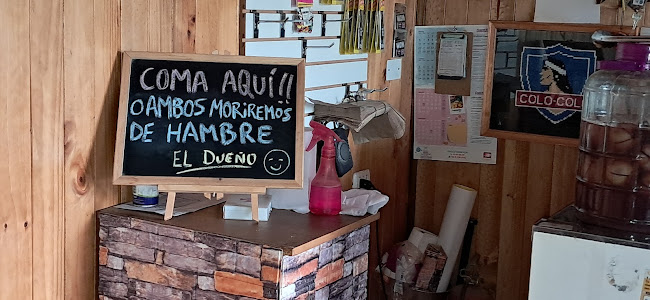 COMA AQUÍ!!
O AMBOS MORIREMOS
DE HAMBRE
EL DUEÑO
COLO-COLO